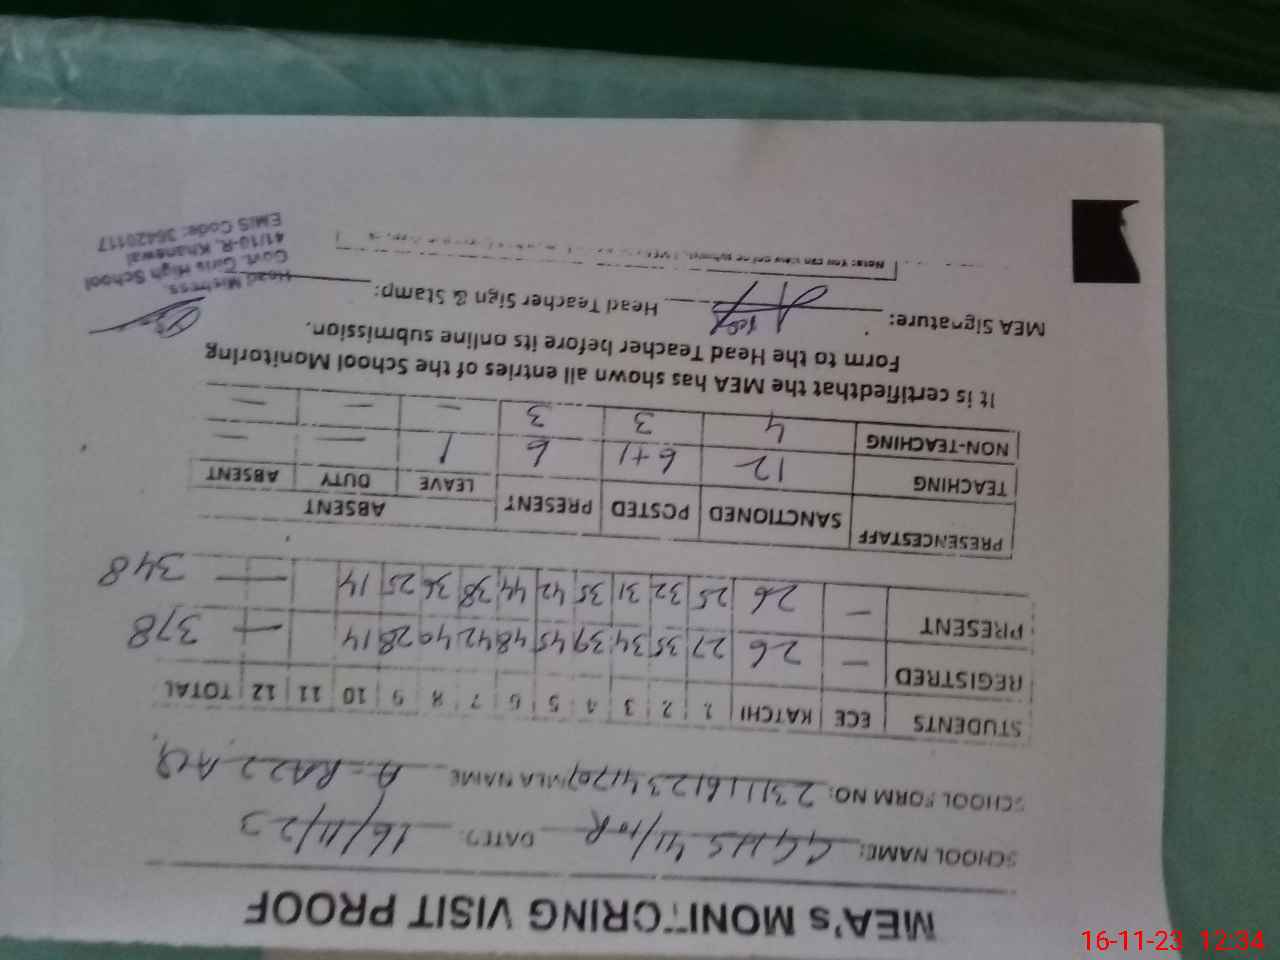 MEA's MONITORING VISIT PROOF
SCHOOL NAME: GGHS 41/10R DATE: 16/11/23
SCHOOL FORM NO: MEA NAME A-RAZZAQ
STUDENTS ECE KATCHI 1 2 3 4 5 6 7 8 9 10 11 12 TOTAL
REGISTRED — 26 27 35 34 39 45 48 42 40 28 14 — 378
PRESENT — 26 25 32 31 35 42 44 38 36 25 14 — 348
PRESENCESTAFF SANCTIONED POSTED PRESENT ABSENT
LEAVE DUTY ABSENT
TEACHING 12 6+1 6 1 — —
NON-TEACHING 4 3 3 — — —
It is certifiedthat the MEA has shown all entries of the School Monitoring
Form to the Head Teacher before its online submission.
MEA Signature: Head Teacher Sign & Stamp:
Head Mistress,
Govt. Girls High School
41/10-R, Khanewal
EMIS Code: 36420117
Note: You can view online
16-11-23 12:34